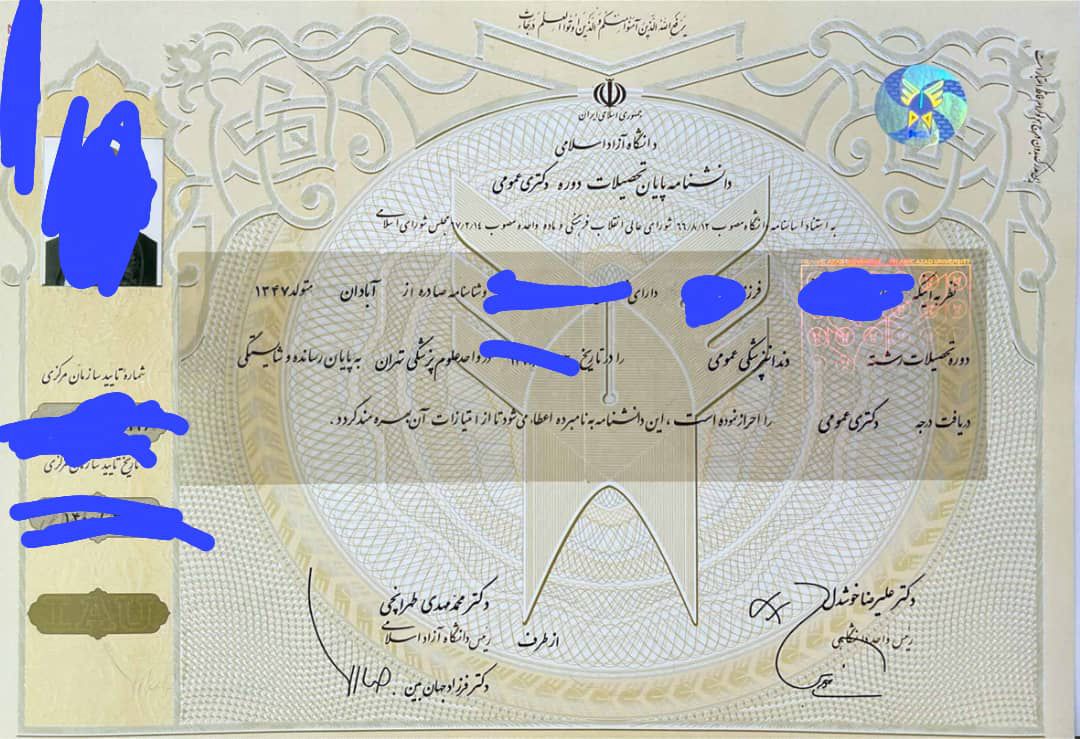 یرفع الله الذین آمنوا منکم و الذین اوتوا العلم درجات
جمهوری اسلامی ایران
دانشگاه آزاد اسلامی
دانشنامه پایان تحصیلات دوره دکتری عمومی
به استناد اساسنامه دانشگاه مصوب ۶۶/۸/۱۲ شورای عالی انقلاب فرهنگی و ماده واحده مصوب ۶۷/۲/۱۴ مجلس شورای اسلامی
ISLAMIC AZAD UNIVERSITY
نظر به اینکه فرزند دارای و شناسنامه صادره از آبادان متولد ۱۳۴۷
دوره تحصیلات رشته دندانپزشکی عمومی را در تاریخ در واحد علوم پزشکی تهران به پایان رسانده و شایستگی
دریافت درجه دکتری عمومی را احراز نموده است، این دانشنامه به نامبرده اعطاء می‌شود تا از امتیازات آن بهره مند گردد.
شماره تایید سازمان مرکزی
تاریخ تایید سازمان مرکزی
IAU
دکتر علیرضا خوشدل
رئیس واحد دانشگاهی
دکتر محمدمهدی طهرانچی
رئیس دانشگاه آزاد اسلامی
از طرف
دکتر فرزاد جهان بین